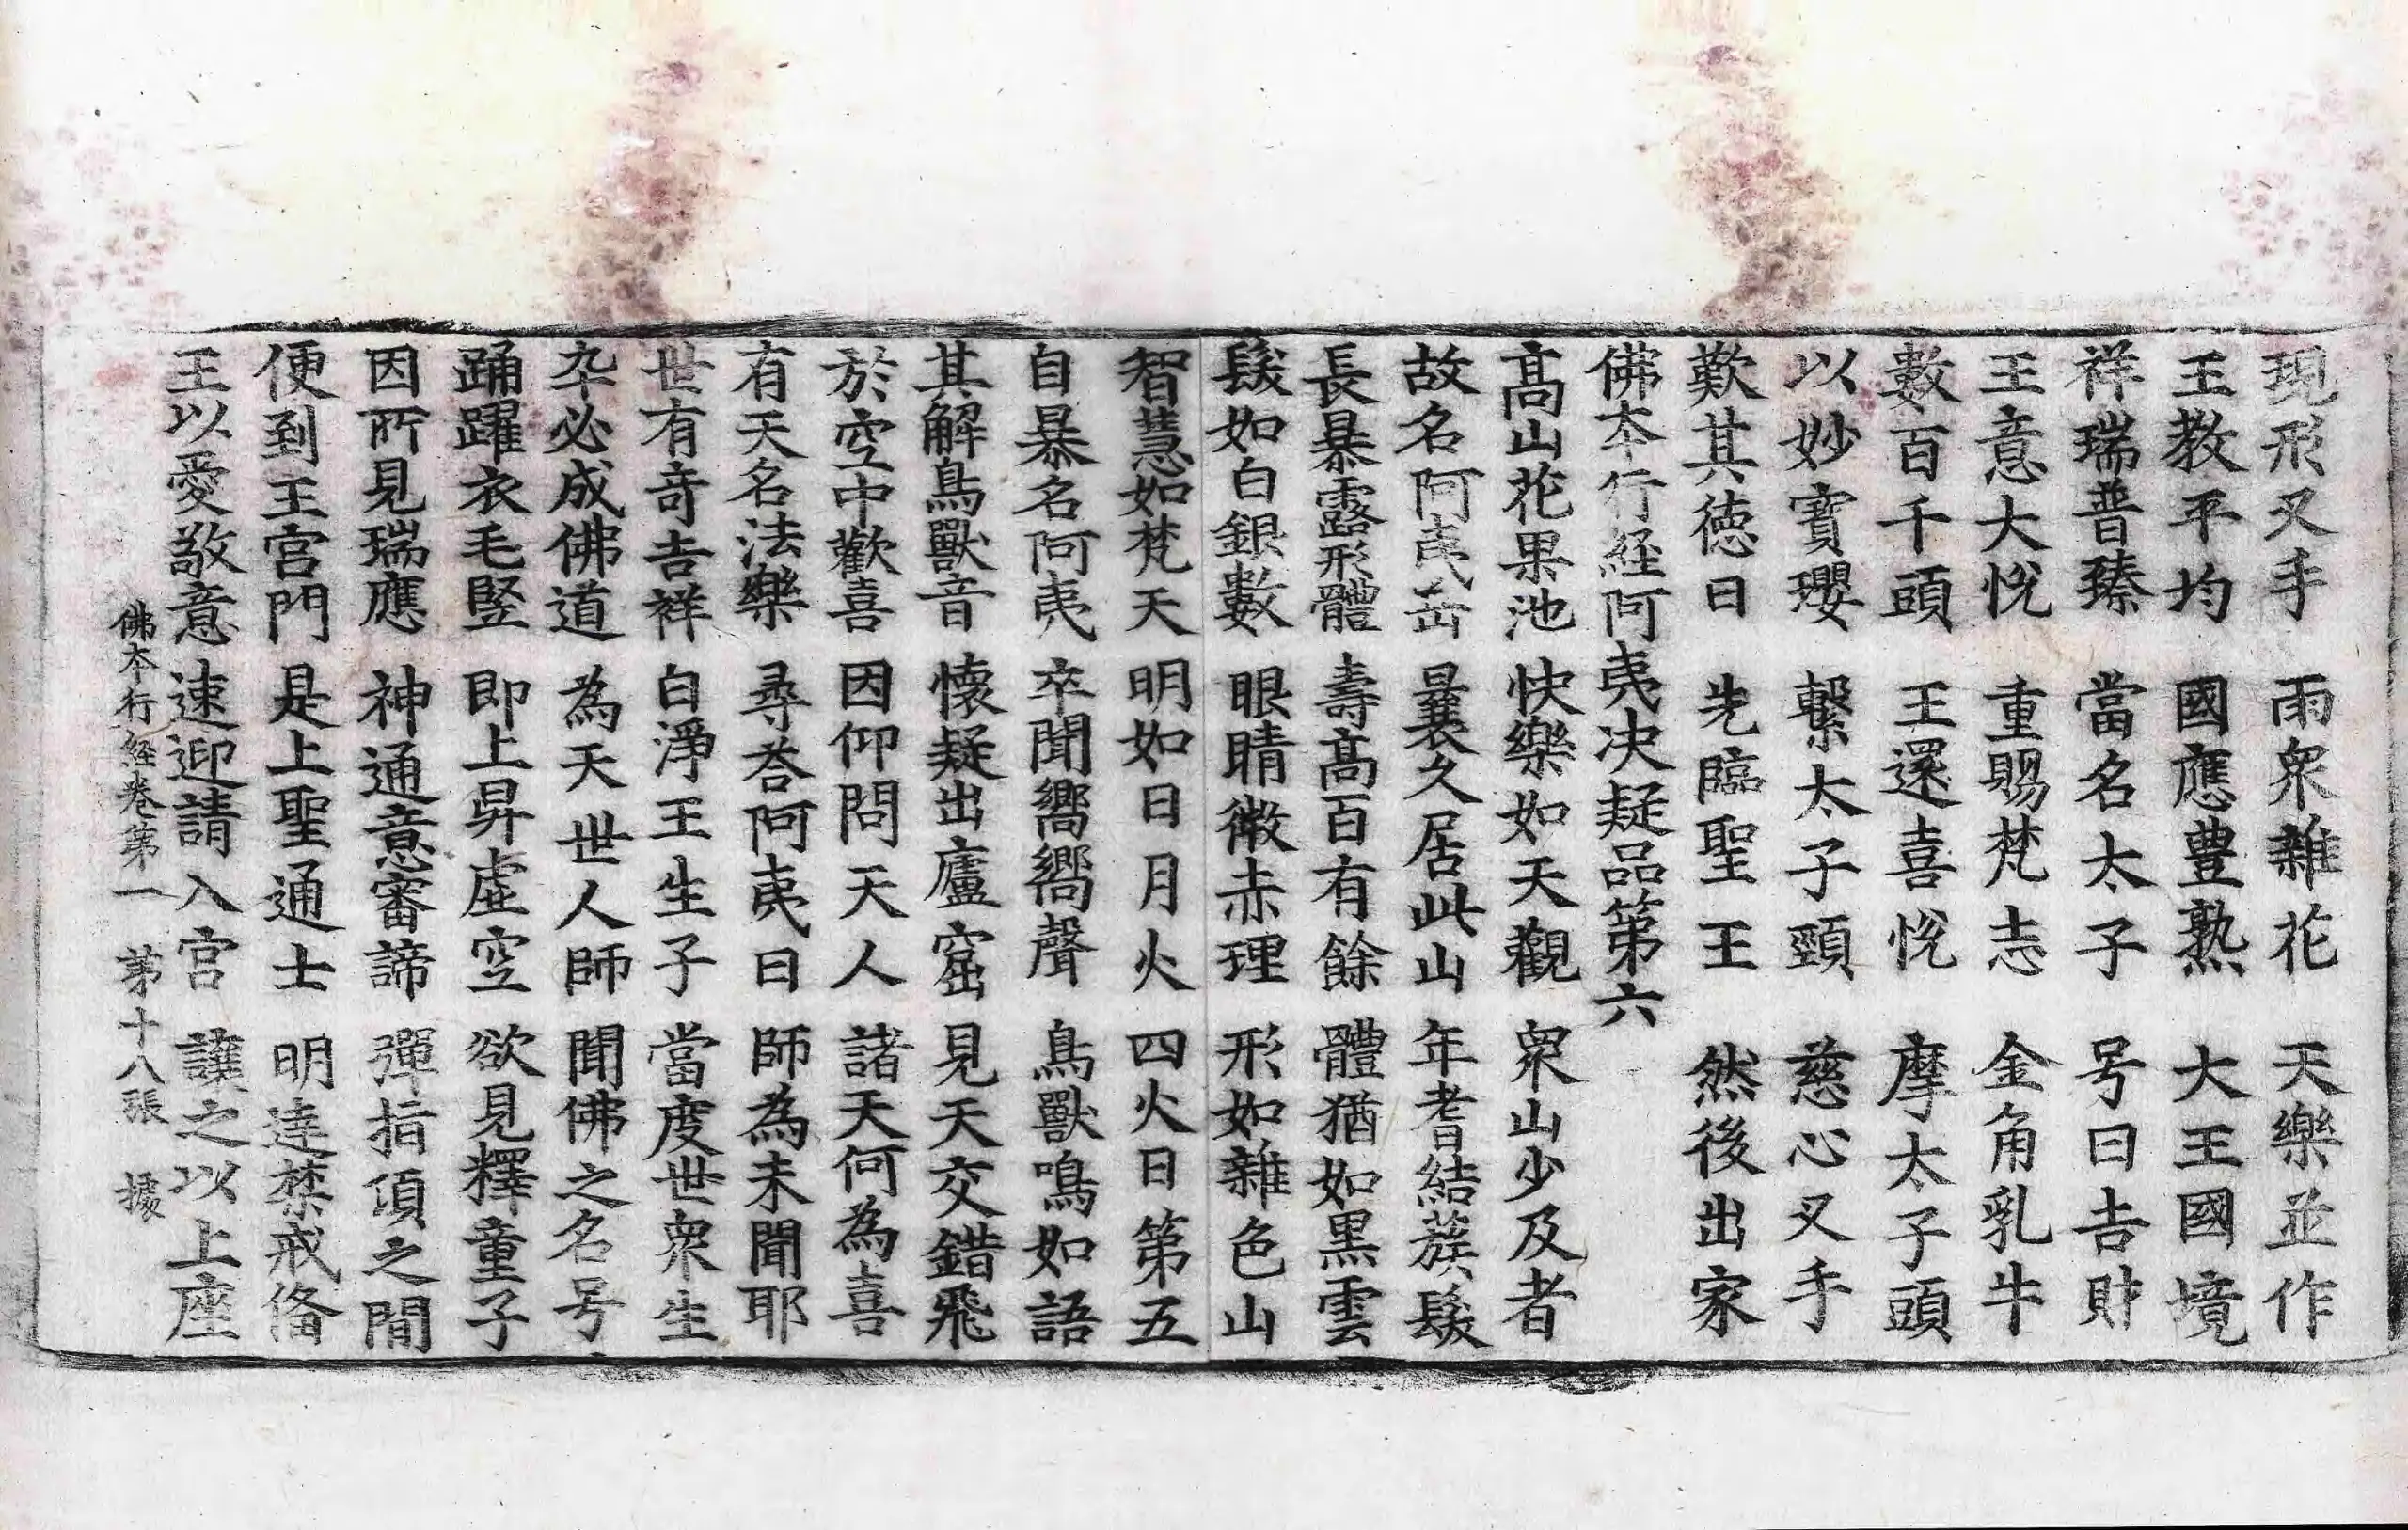 現形叉手　雨衆雜花　天樂並作
王教平均　國應豊熟　大王國境
祥瑞普臻　當名太子　号曰吉財
王意大悅　重賜梵志　金角乳牛
數百千頭　王還喜悅　摩太子頭
以妙寶瓔　繫太子頸　慈心叉手
歎其徳曰　先臨聖王　然後出家
佛夲行経阿夷决疑品第六
髙山花果池　快樂如天觀　衆山少及者
故名阿夷岳　曩久居此山　年耆結蔟髮
長暴露形體　壽髙百有餘　體猶如黒雲
髮如白銀數　眼睛微赤理　形如雜色山
智慧如梵天　明如日月火　四火日第五
自暴名阿夷　卒聞嚮嚮聲　鳥獸鳴如語
其解鳥獸音　懷疑出廬窟　見天交錯飛
於空中歡喜　因仰問天人　諸天何為喜
有天名法樂　尋荅阿夷曰　師為未聞耶
世有竒吉祥　白淨王生子　當度世衆生
卒必成佛道　為天世人師　聞佛之名号
踊躍衣毛竪　即上昇虛空　欲見釋童子
因所見瑞應　神通意審諦　彈指頃之間
便到王宮門　是上聖通士　明達禁戒俻
王以愛敬意　速迎請入宮　讓之以上座
佛夲行経卷第一　第十八張　據